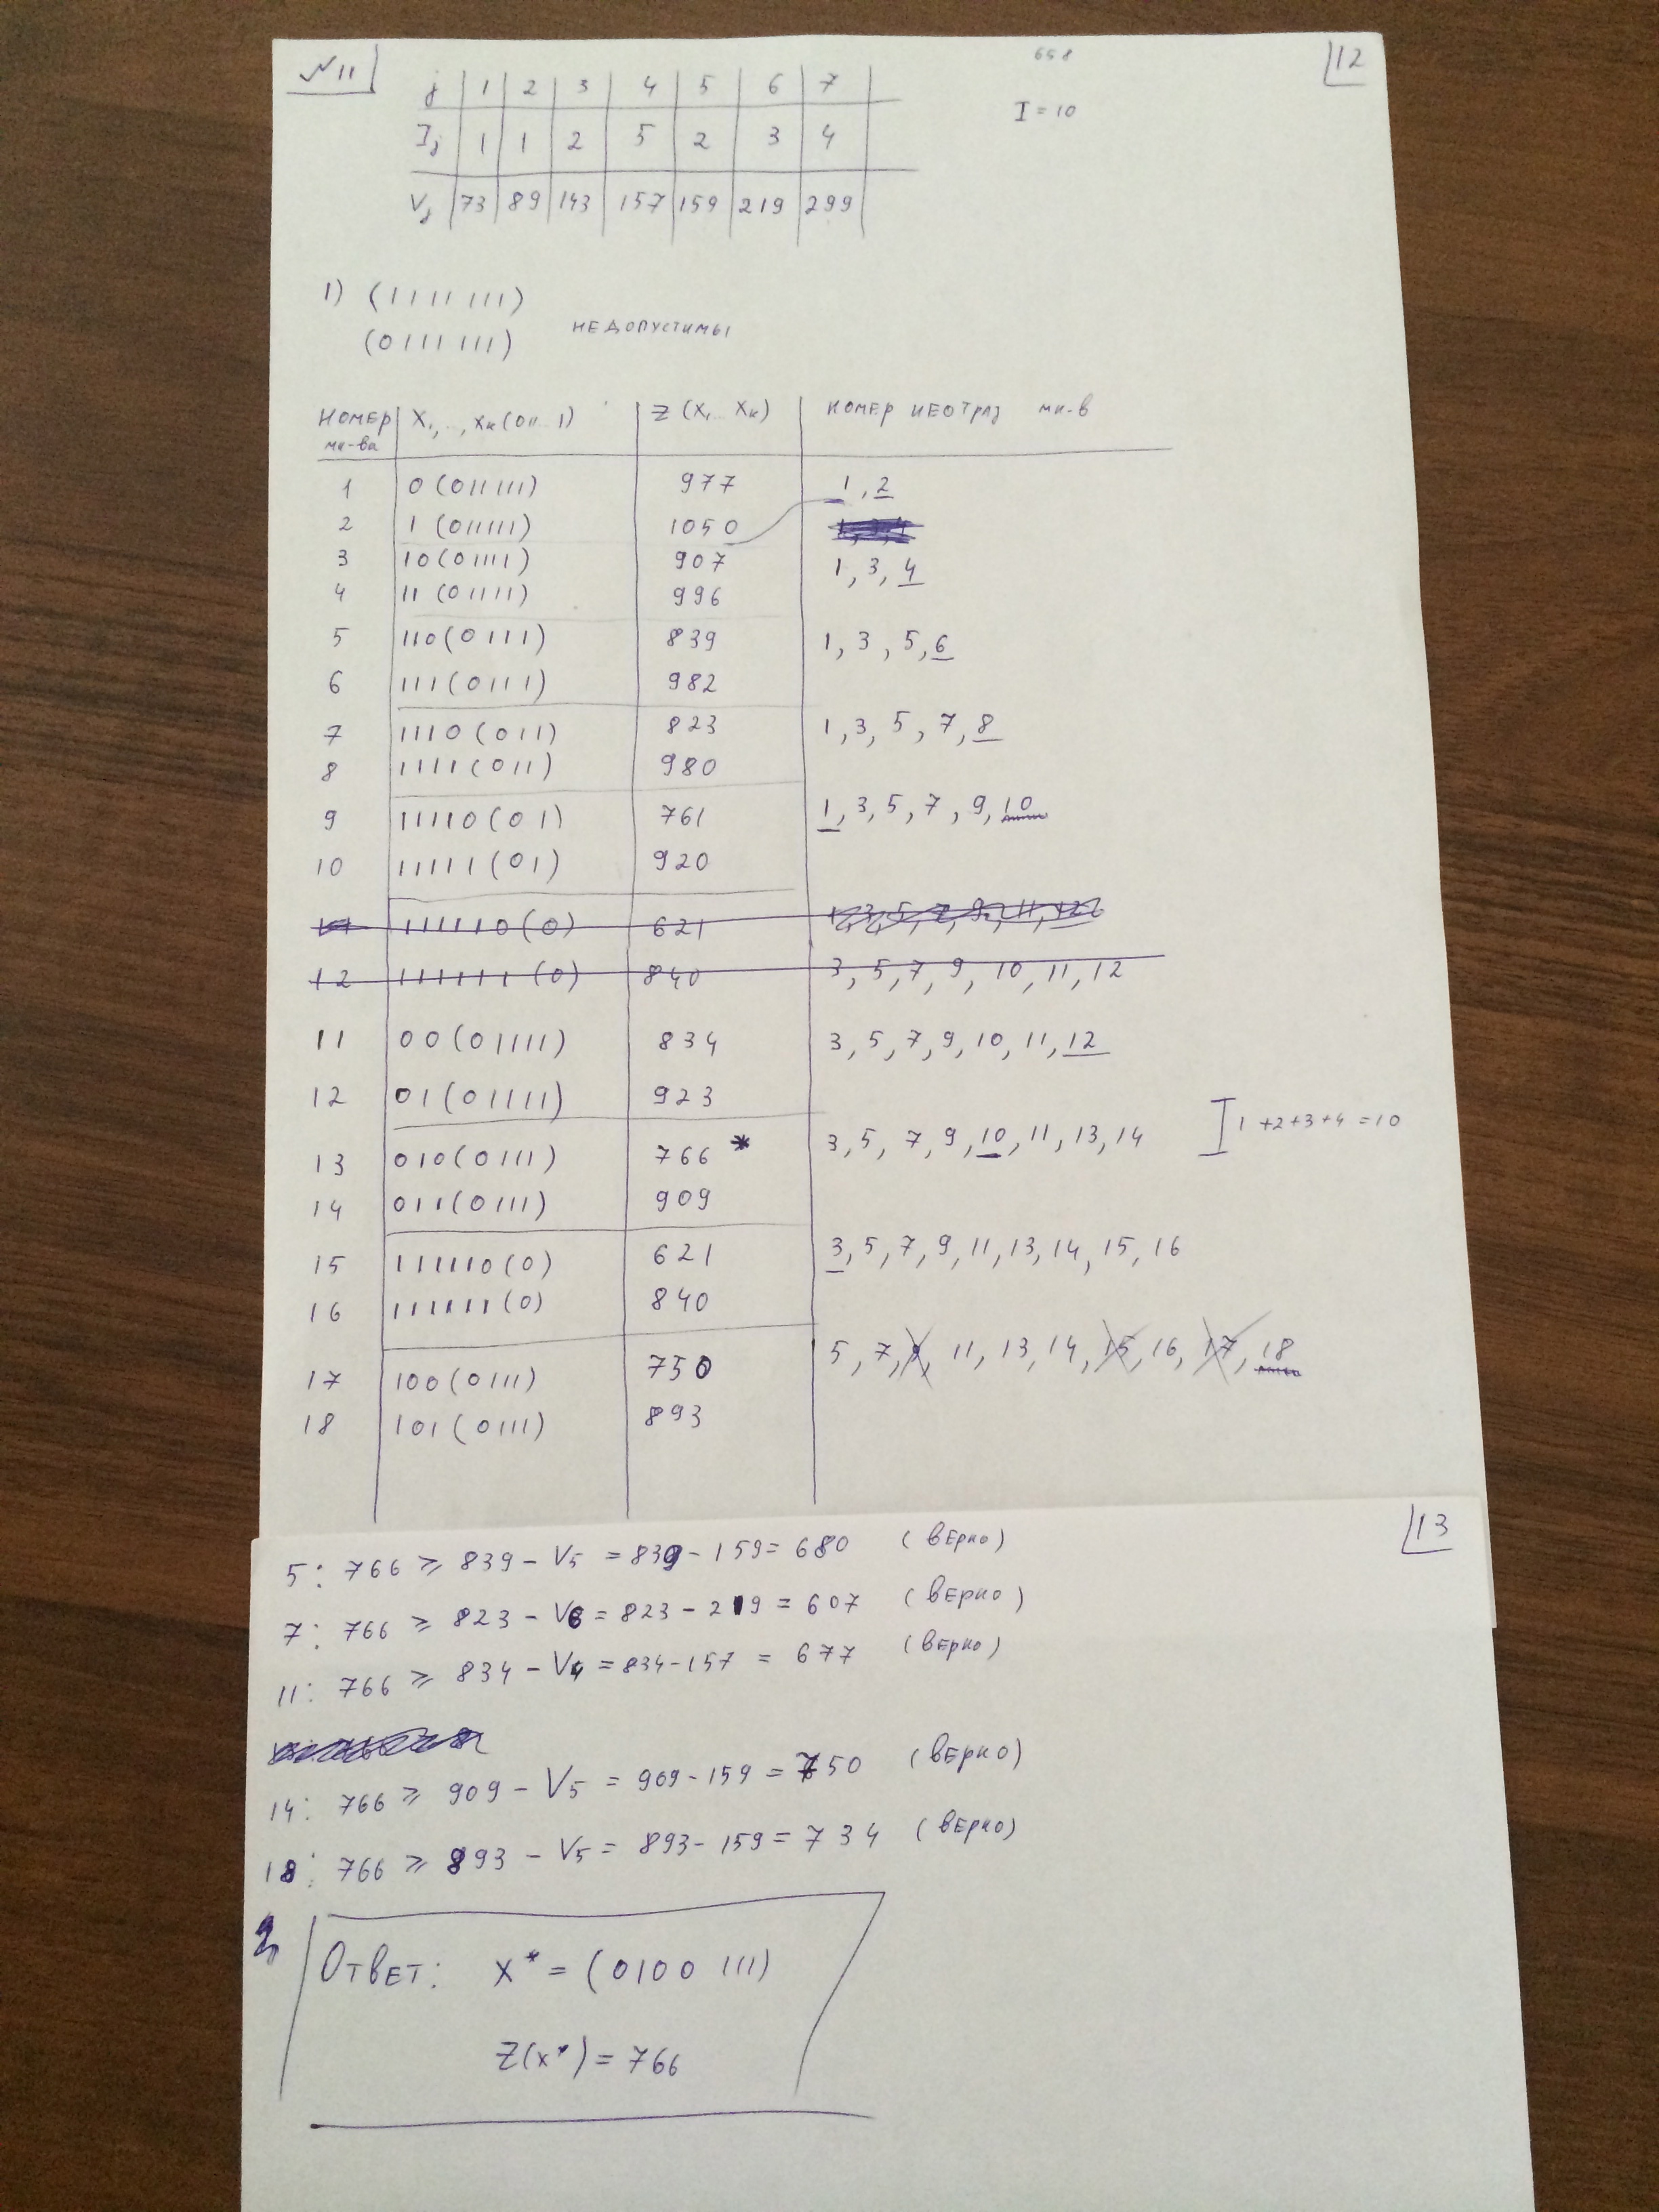 №11
658
12
j 1 2 3 4 5 6 7
I = 10
Ij 1 1 2 5 2 3 4
Vj 73 89 143 157 159 219 299
1) (1111111)
(0111111)
НЕДОПУСТИМЫ
НОМЕР мн-ва X1,..,Xк(011..1) Z(X1...Xк) НОМЕР НЕОТРАЗ мн-в
1 0(011111) 977 1, 2
2 1(01111) 1050
3 10(01111) 907 1, 3, 4
4 11(01111) 996
5 110(0111) 839 1, 3, 5, 6
6 111(0111) 982
7 1110(011) 823 1, 3, 5, 7, 8
8 1111(011) 980
9 11110(01) 761 1, 3, 5, 7, 9, 10
10 11111(01) 920
11 111110(0) 621 1, 3, 5, 7, 9, 11, 12
12 111111(0) 840 3, 5, 7, 9, 10, 11, 12
11 00(01111) 834 3, 5, 7, 9, 10, 11, 12
12 01(01111) 923
I 1+2+3+4=10
13 010(0111) 766 * 3, 5, 7, 9, 10, 11, 13, 14
14 011(0111) 909
15 111110(0) 621 3, 5, 7, 9, 11, 13, 14, 15, 16
16 111111(0) 840
17 100(0111) 750 5, 7, 9, 11, 13, 14, 15, 16, 17, 18
18 101(0111) 893
13
5: 766 ⩾ 839 - V5 = 839 - 159 = 680 (верно)
7: 766 ⩾ 823 - V6 = 823 - 219 = 607 (верно)
11: 766 ⩾ 834 - V4 = 834-157 = 677 (верно)
14: 766 ⩾ 909 - V5 = 909-159 = 750 (верно)
18: 766 ⩾ 893 - V5 = 893-159 = 734 (верно)
Ответ: X* = (0100 111)
Z(x*) = 766